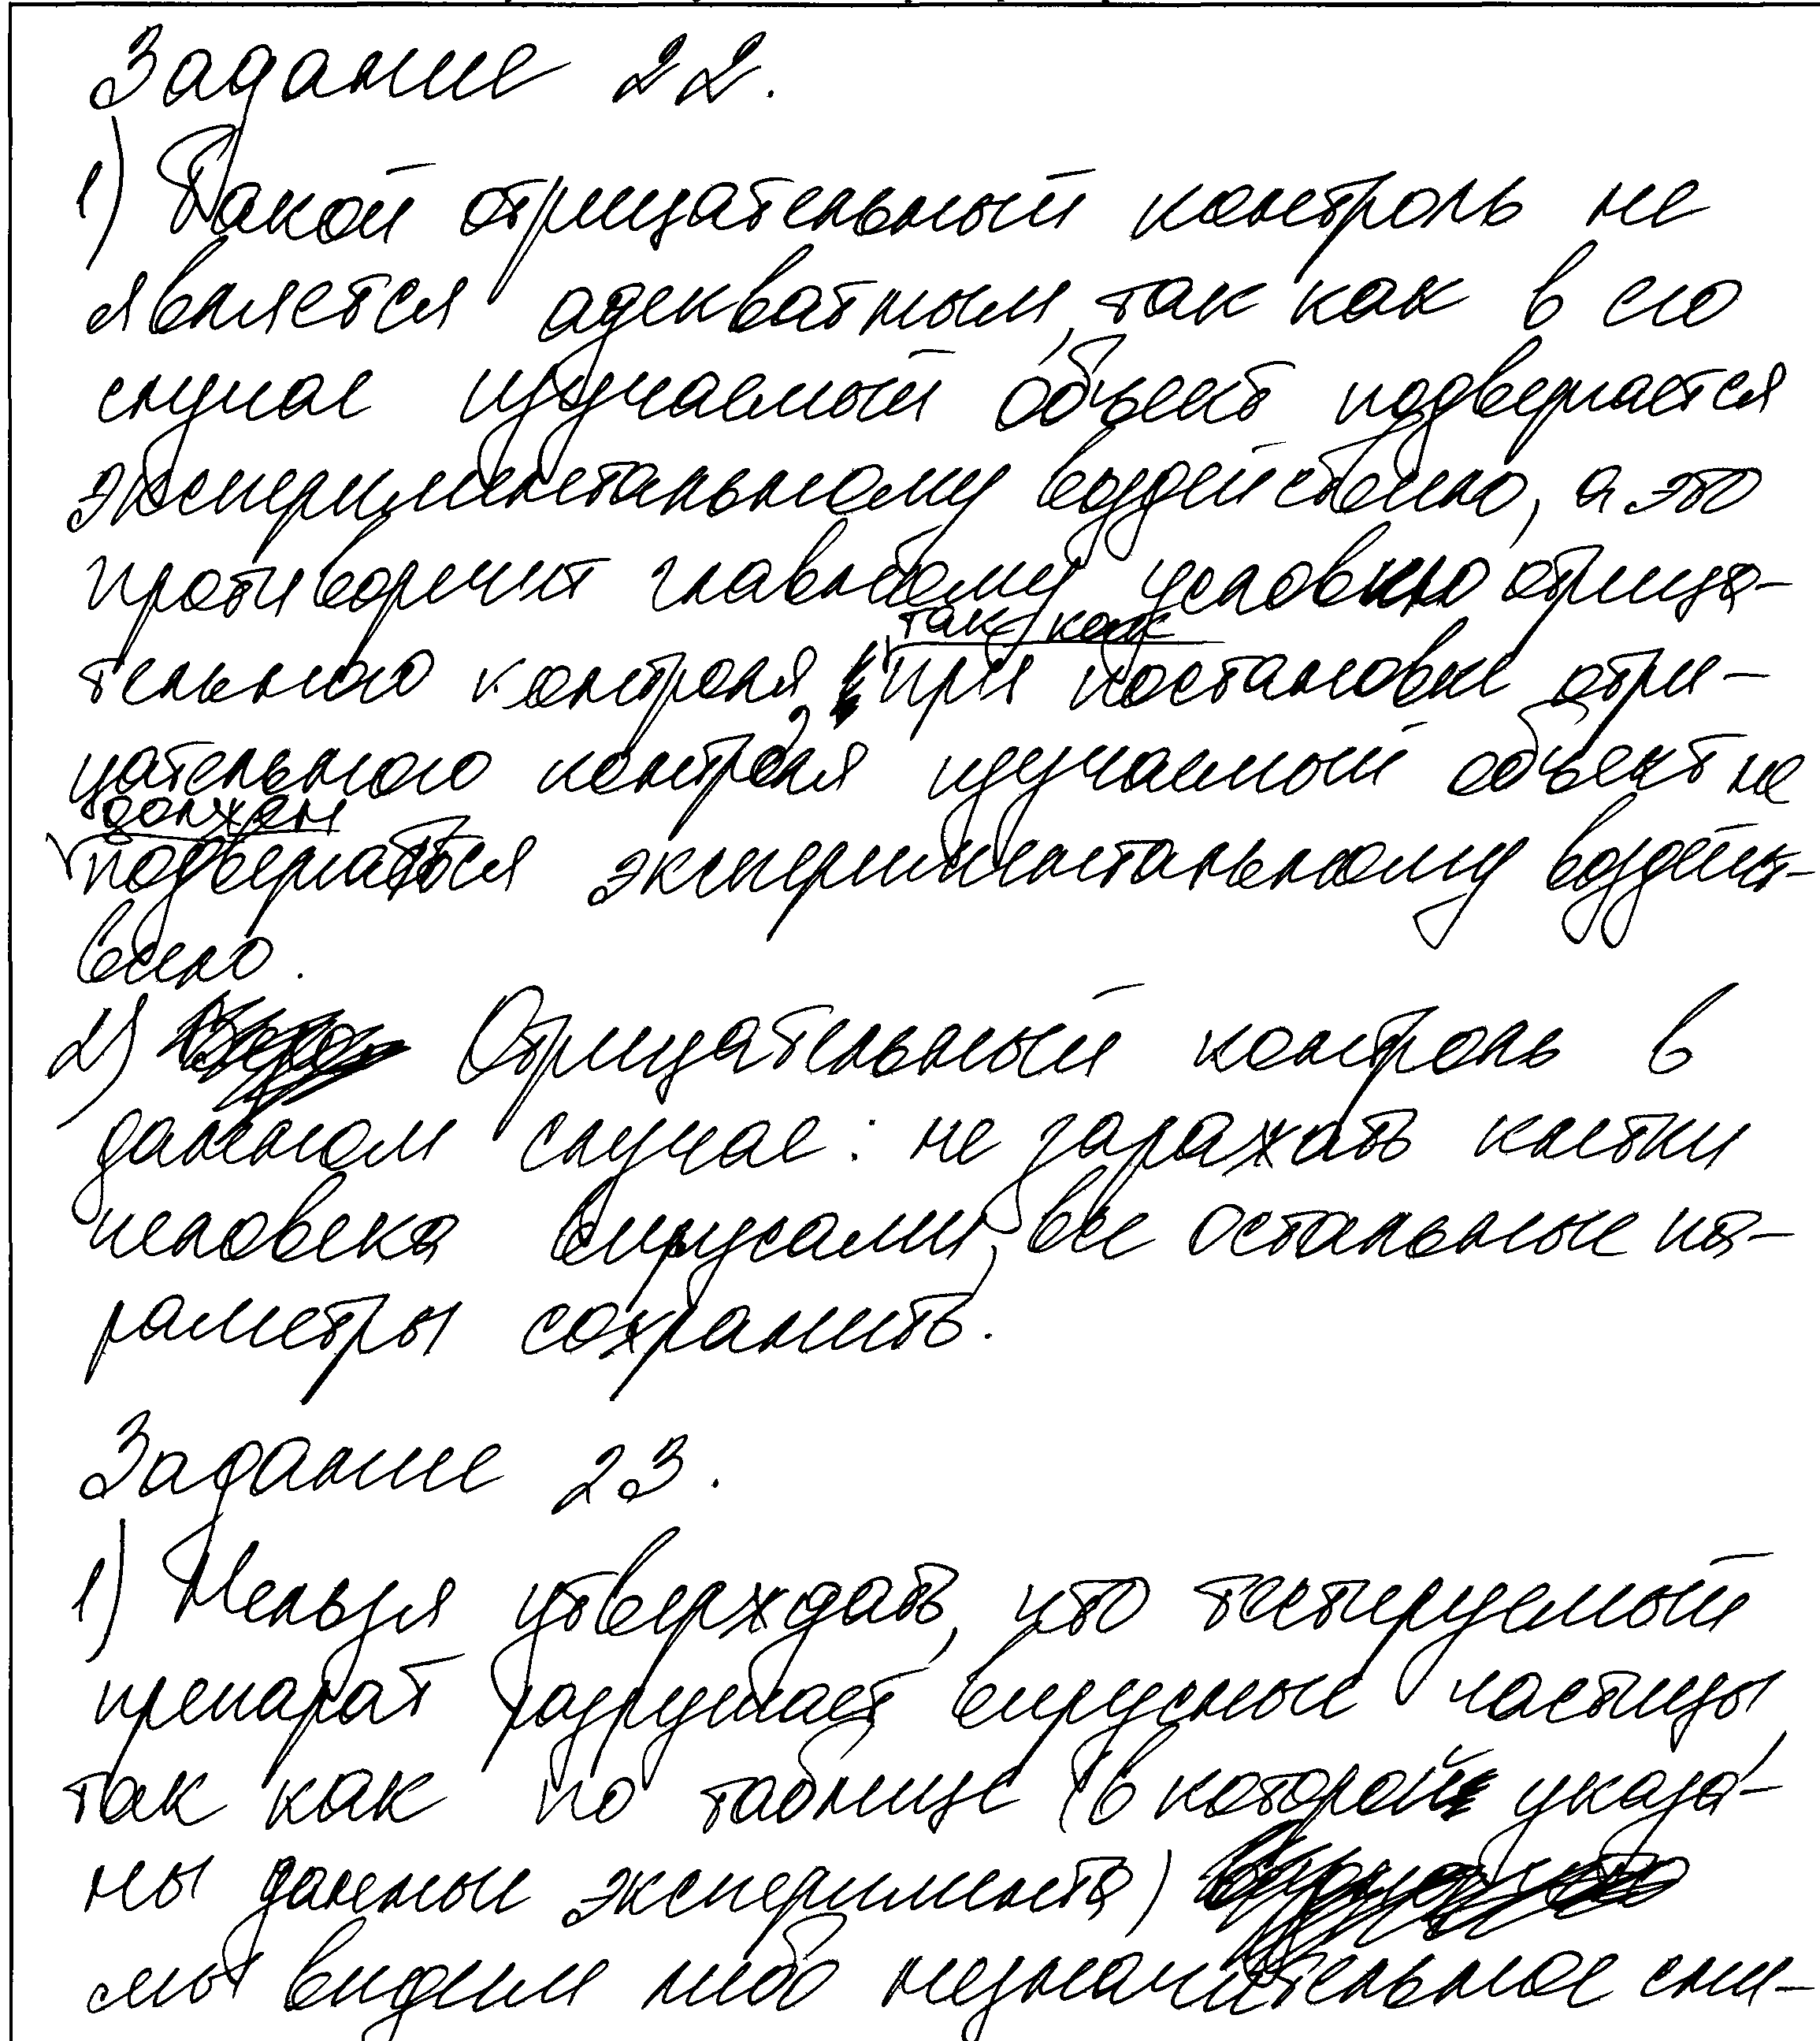 Задание 22.
1) Такой отрицательный контроль не
является адекватным, так как в его
случае изучаемый объект подвергается
экспериментальному воздействию, а это
противоречит главному условию отрица-
так как
тельного контроля, при постановке отри-
цательного контроля изучаемый объект не
должен
подвергаться экспериментальному воздейст-
вию.
2) Отрицательный контроль в
данном случае: не заражать клетки
человека вирусами, все остальные па-
раметры сохранить.
Задание 23.
1) Нельзя утверждать, что тестируемый
препарат разрушает вирусные частицы,
так как по таблице (в которой указа-
ны данные эксперимента)
мы видим либо незначительное сни-